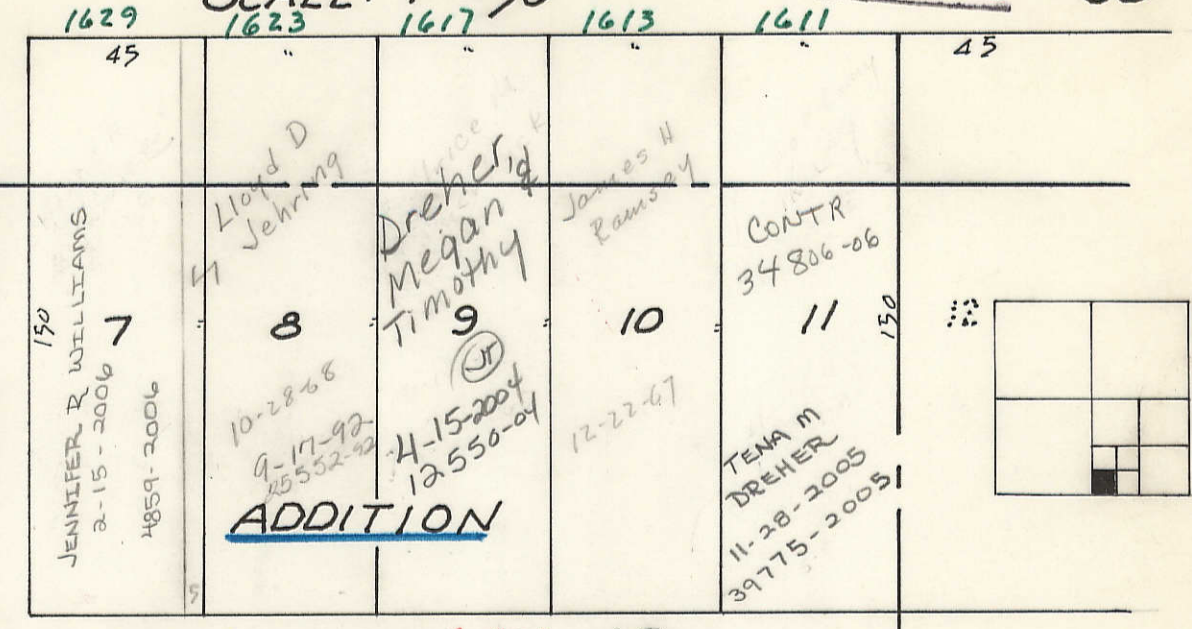 1629 1623 1617 1613 1611
45 " " " " 45
JENNIFER R WILLIAMS
2-15-2006
4859-2006
150
7
5
Lloyd D
Jehring
8
10-28-68
9-17-92
25552-92
Dreher, &
Megan
Timothy
9
JT
4-15-2004
12550-04
James H
Ramsey
10
12-22-67
CONTR
34806-06
11
150
TENA M
DREHER
11-28-2005
39775-2005
12
ADDITION